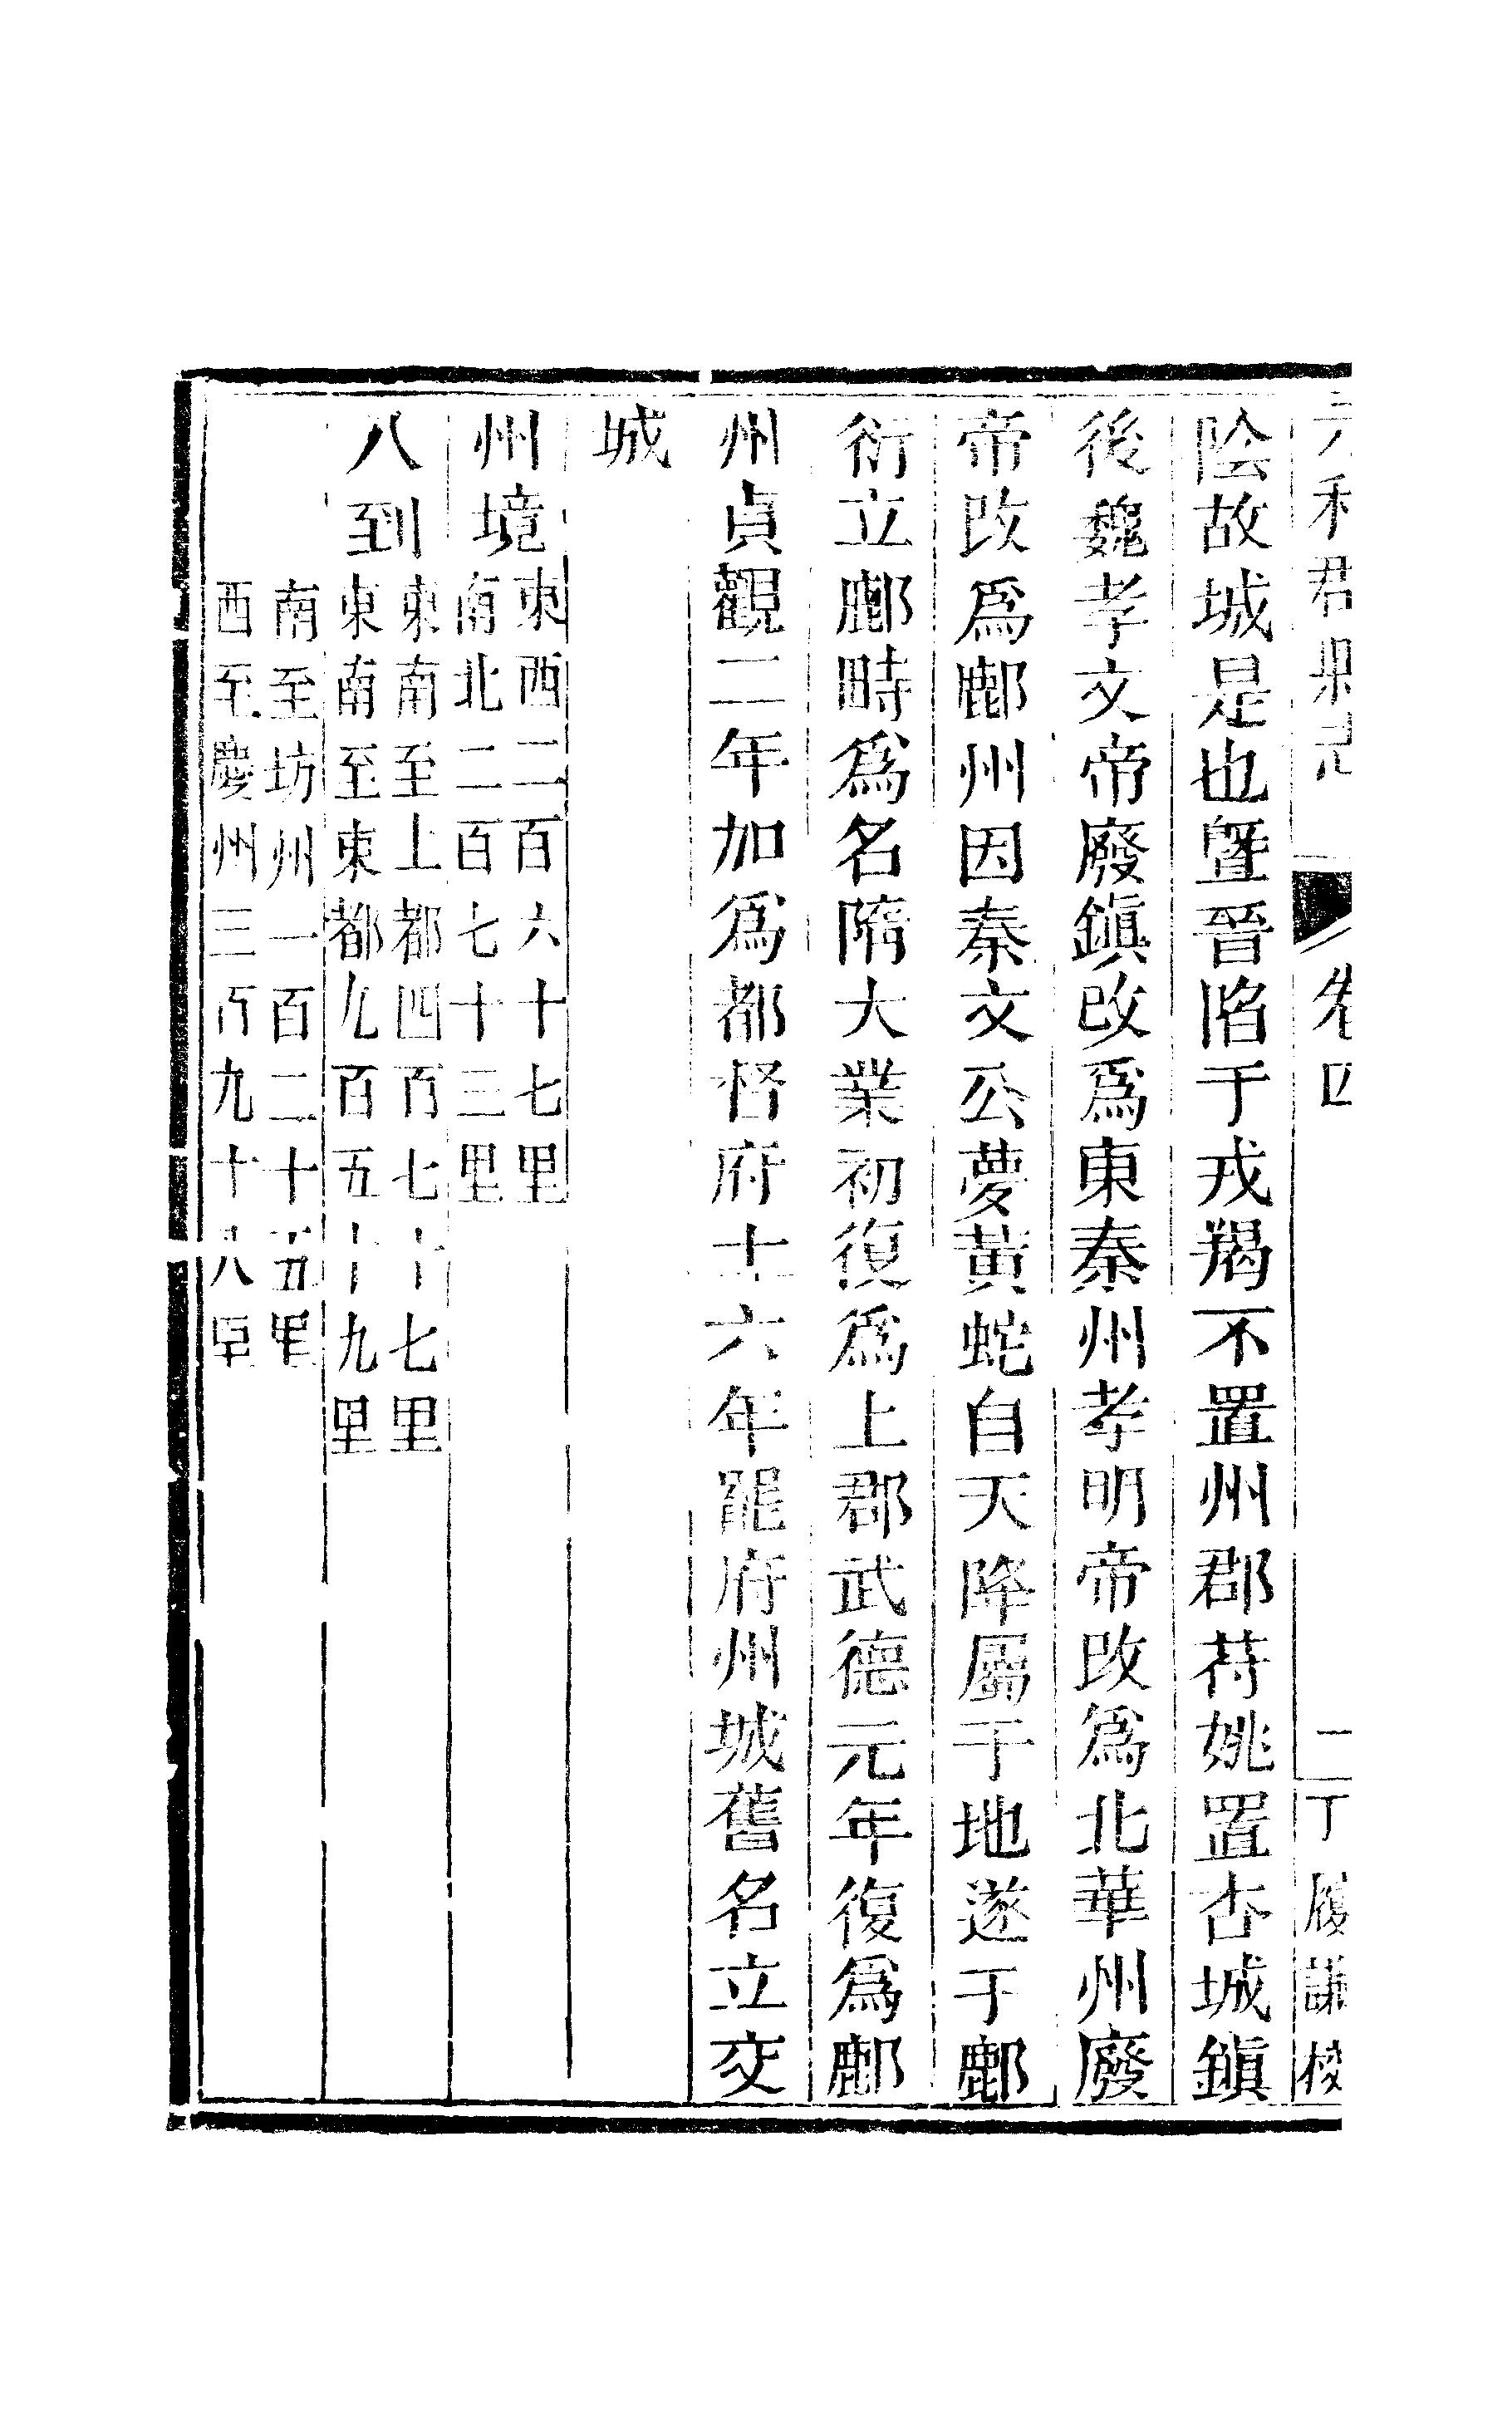 元和郡縣志　卷四　丁履謙校
陰故城是也暨晉陷于戎羯不置州郡苻姚置杏城鎮
後魏孝文帝廢鎮改爲東秦州孝明帝改爲北華州廢
帝改爲鄜州因秦文公夢黃蛇自天降屬于地遂于鄜
衍立鄜畤爲名隋大業初復爲上郡武德元年復爲鄜
州貞觀二年加爲都督府十六年罷府州城舊名立交
城
州境東西二百六十七里
南北二百七十三里
八到東南至上都四百七十七里
東南至東都九百五十九里
南至坊州一百二十五里
西至慶州三百九十八里